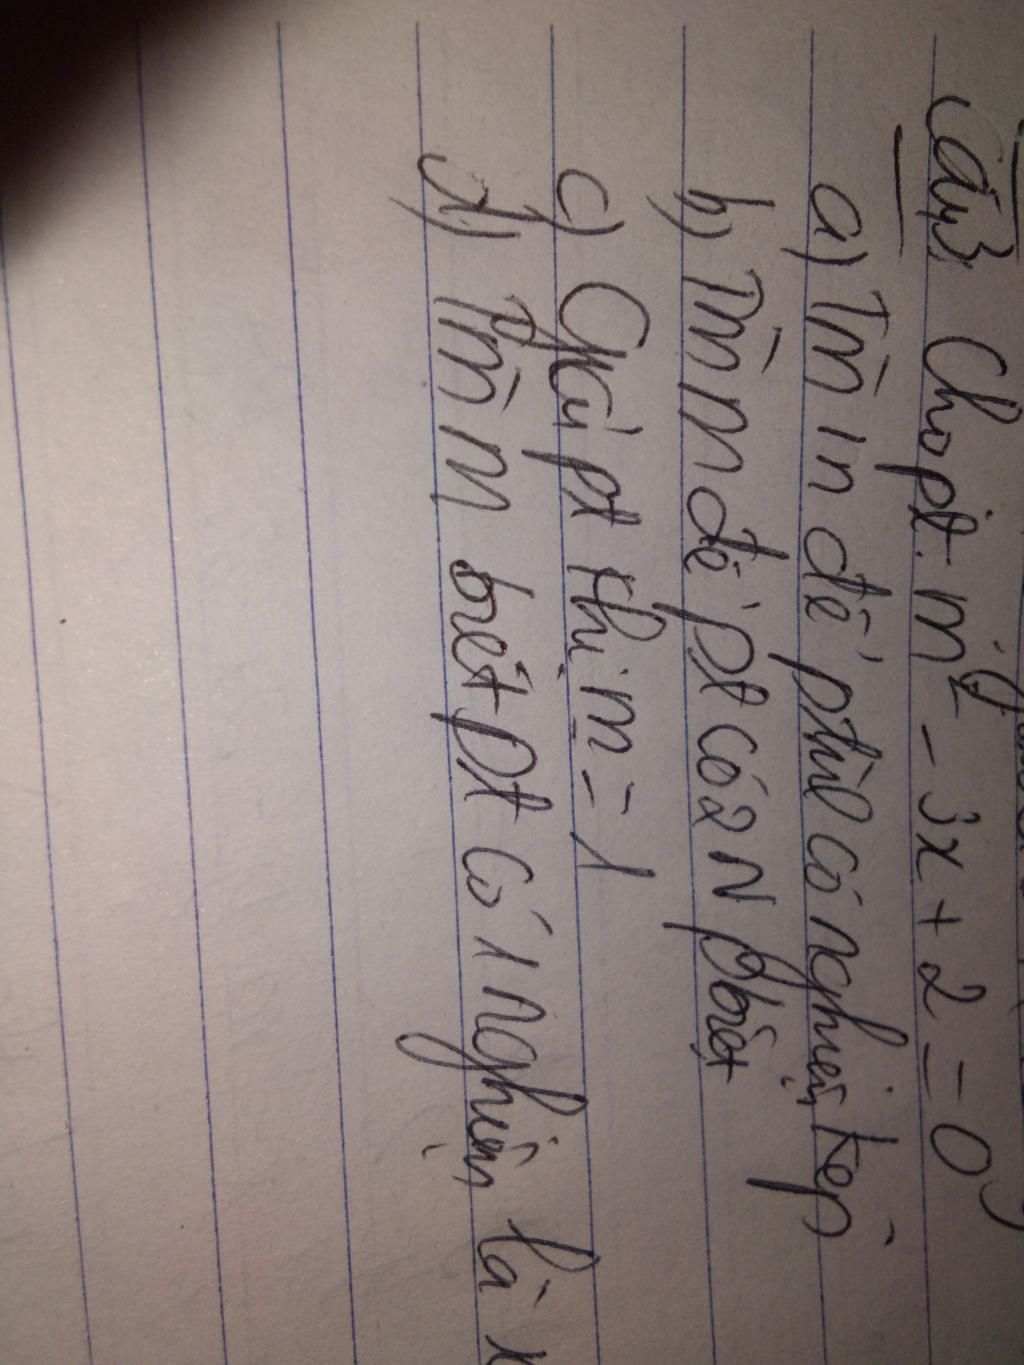 Câu 3 Cho pt. m² - 3x + 2 = 0
a) Tìm m để pt có nghiệm kép
b) Tìm m để pt có 2 N pbiệt
c) Giải pt khi m = 1
d) Tìm m biết pt có 1 nghiệm là x